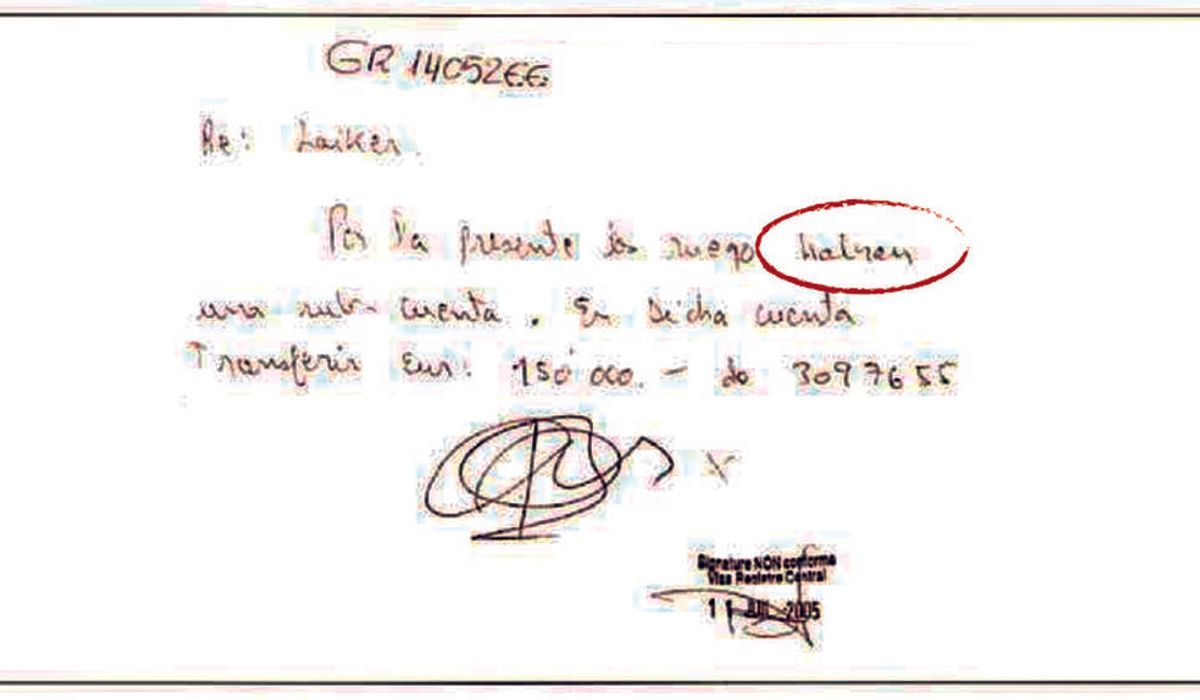 GR 1405266
Re: Laiker.
Por la presente les ruego habran
una sub-cuenta. En dicha cuenta
Transferir Eur. 150'000.- de 3097655
X
Signature NON conforme
Visa Registre Central
11 JUL 2005